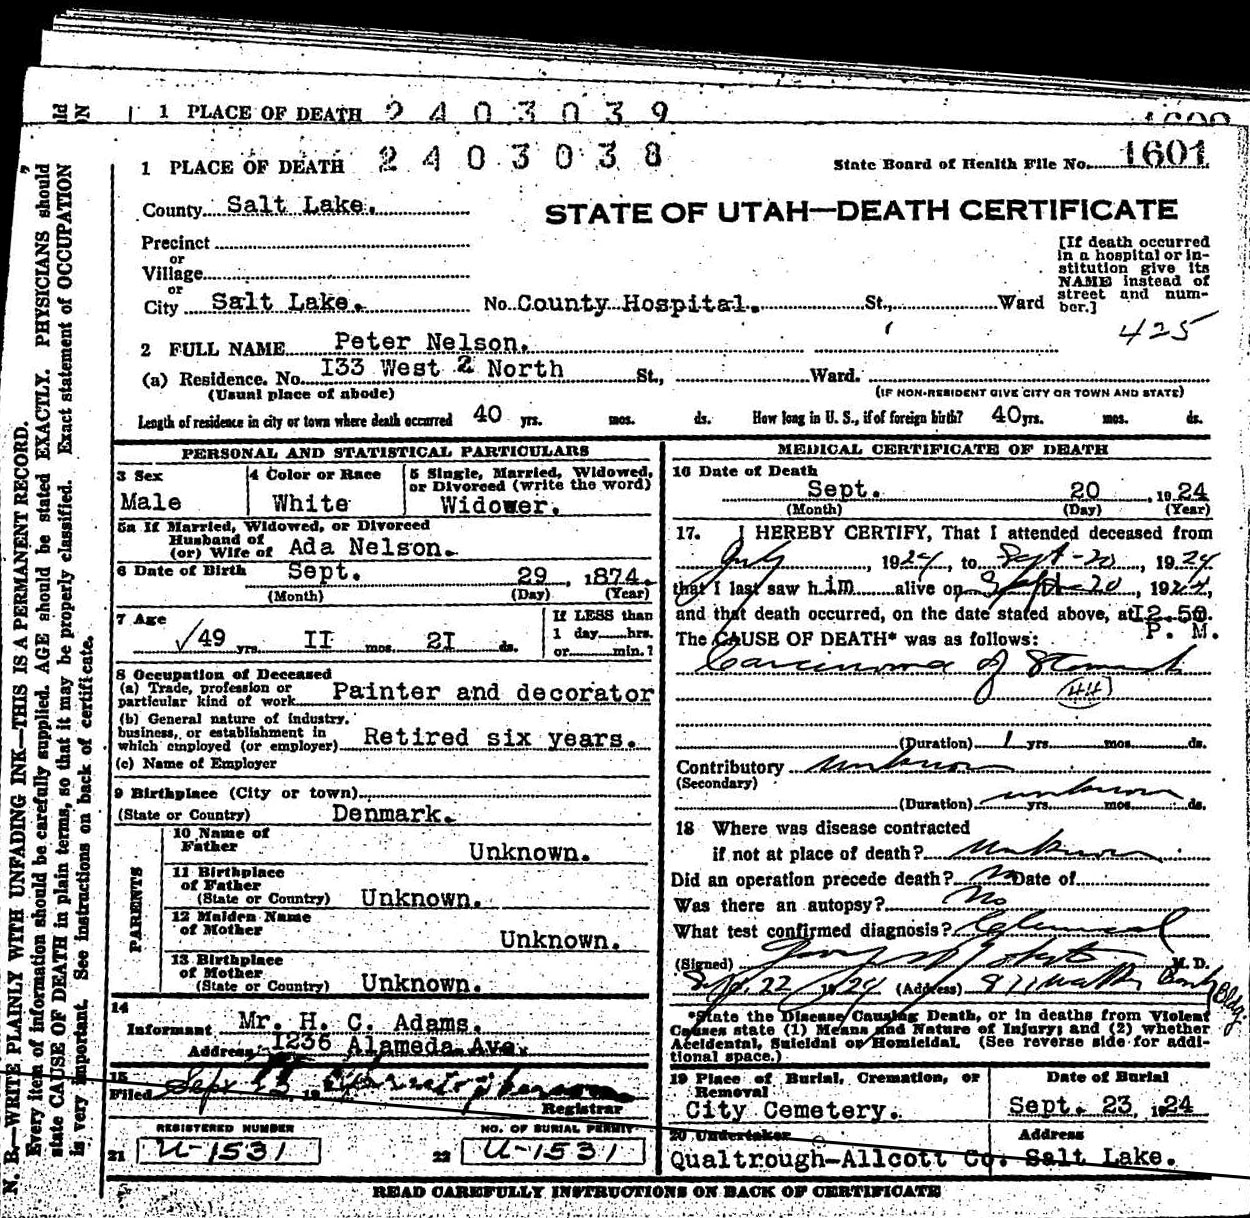 1 PLACE OF DEATH 2403039
1 PLACE OF DEATH 2403038
State Board of Health File No. 1601
County Salt Lake.
STATE OF UTAH—DEATH CERTIFICATE
Precinct
or
Village
or
City Salt Lake. No. County Hospital. St., Ward
[If death occurred in a hospital or institution give its NAME instead of street and number.]
425
2 FULL NAME Peter Nelson.
(a) Residence. No. I33 West 2 North St., Ward.
(Usual place of abode) (IF NON-RESIDENT GIVE CITY OR TOWN AND STATE)
Length of residence in city or town where death occurred 40 yrs. mos. ds. How long in U. S., if of foreign birth? 40 yrs. mos. ds.
PERSONAL AND STATISTICAL PARTICULARS
3 Sex 4 Color or Race 5 Single, Married, Widowed, or Divorced (write the word)
Male White Widower.
5a If Married, Widowed, or Divorced
Husband of
(or) Wife of Ada Nelson.
6 Date of Birth Sept. 29, 1874.
(Month) (Day) (Year)
7 Age
49 yrs. II mos. 2I ds.
If LESS than
1 day hrs.
or min.?
8 Occupation of Deceased
(a) Trade, profession or
particular kind of work Painter and decorator
(b) General nature of industry,
business, or establishment in
which employed (or employer) Retired six years.
(c) Name of Employer
9 Birthplace (City or town)
(State or Country) Denmark.
PARENTS
10 Name of
Father Unknown.
11 Birthplace
of Father
(State or Country) Unknown.
12 Maiden Name
of Mother Unknown.
13 Birthplace
of Mother
(State or Country) Unknown.
14
Informant Mr. H. C. Adams.
Address I236 Alameda Ave.
15
Filed Sept 23 19
Registrar
REGISTERED NUMBER NO. OF BURIAL PERMIT
21 U-1531 22 U-1531
MEDICAL CERTIFICATE OF DEATH
16 Date of Death
Sept. 20, 1924
(Month) (Day) (Year)
17. I HEREBY CERTIFY, That I attended deceased from
July, 1924, to Sept-20, 1924
that I last saw him alive on Sept-20, 1924,
and that death occurred, on the date stated above, at I2.50.
P. M.
The CAUSE OF DEATH* was as follows:
Carcinoma of Stomach
(44)
(Duration) 1 yrs. mos. ds.
Contributory unknown
(Secondary)
(Duration) unknown yrs. mos. ds.
18 Where was disease contracted
if not at place of death? Unknown
Did an operation precede death? No Date of
Was there an autopsy? No
What test confirmed diagnosis? Clinical
(Signed) M. D.
Sept. 22 1924 (Address) 811 Walker Bank Bldg.
*State the Disease Causing Death, or in deaths from Violent
Causes state (1) Means and Nature of Injury; and (2) whether
Accidental, Suicidal or Homicidal. (See reverse side for addi-
tional space.)
19 Place of Burial, Cremation, or Removal Date of Burial
City Cemetery. Sept. 23, 1924
20 Undertaker Address
Qualtrough-Allcott Co. Salt Lake.
READ CAREFULLY INSTRUCTIONS ON BACK OF CERTIFICATE
N. B.—WRITE PLAINLY WITH UNFADING INK—THIS IS A PERMANENT RECORD.
Every item of information should be carefully supplied. AGE should be stated EXACTLY. PHYSICIANS should
state CAUSE OF DEATH in plain terms, so that it may be properly classified. Exact statement of OCCUPATION
is very important. See instructions on back of certificate.